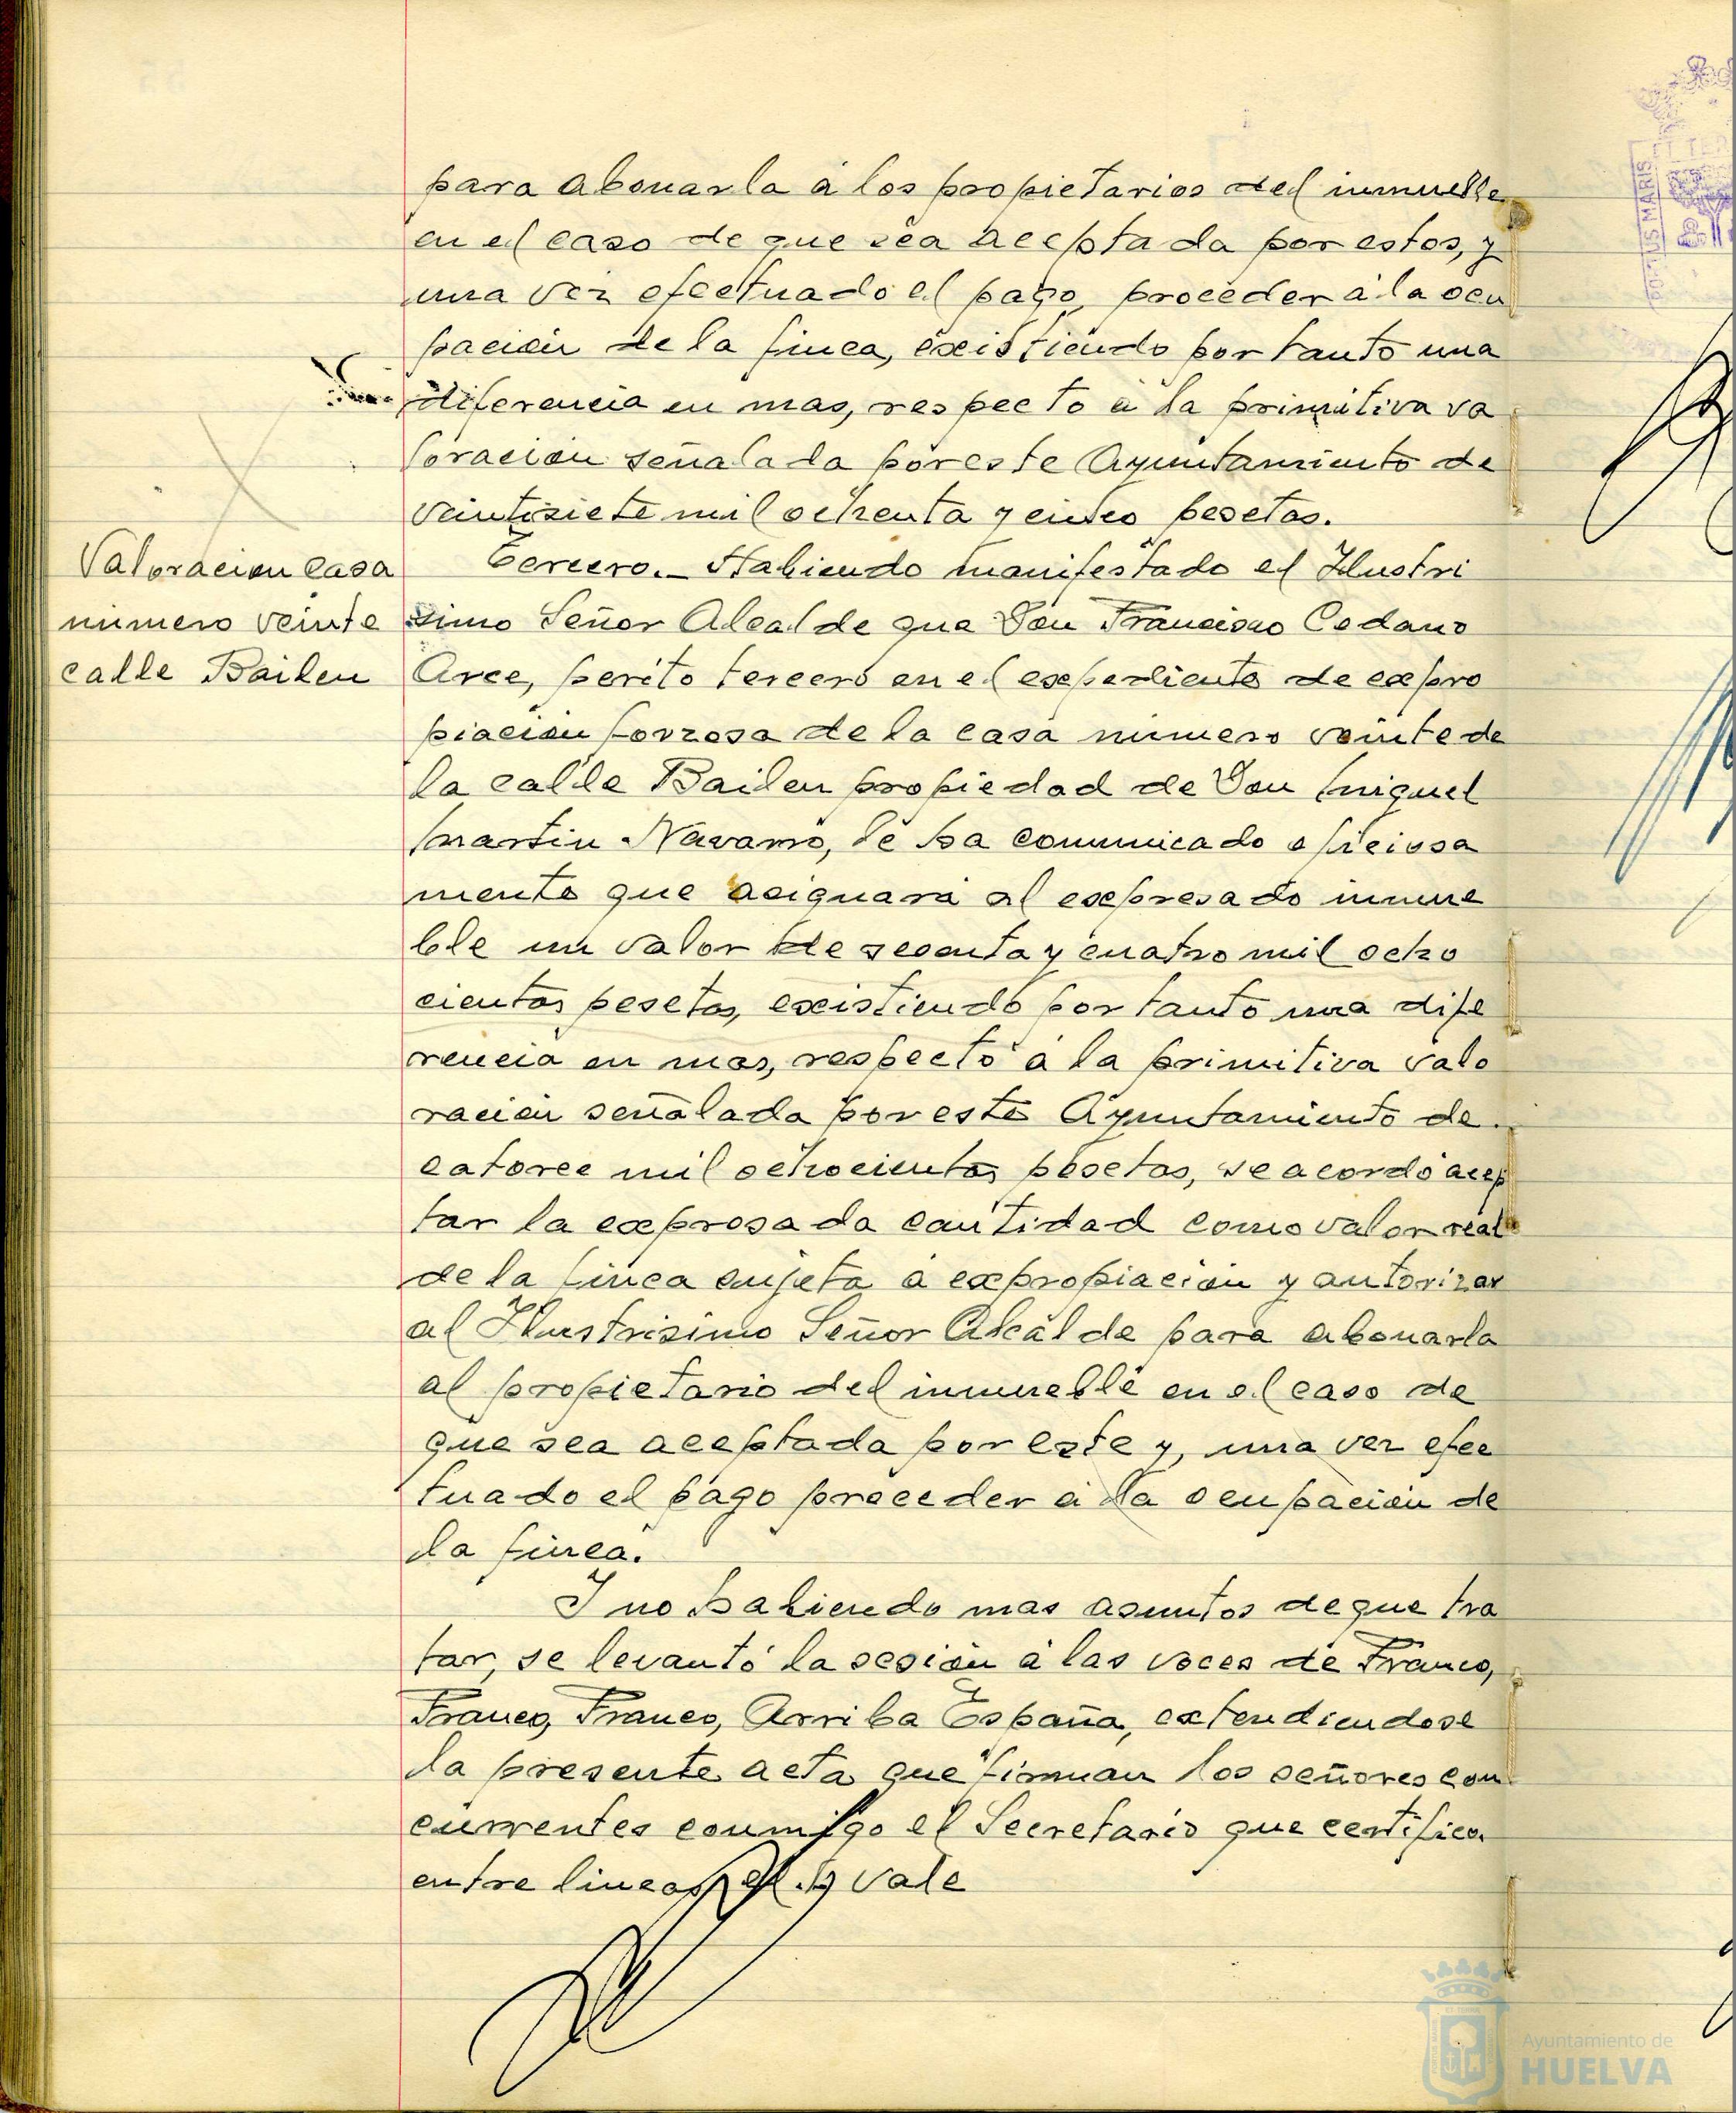 para abonarla á los propietarios del inmueble
en el caso de que sea aceptada por estos, y
una vez efectuado el pago, proceder á la ocu
pación de la finca, existiendo por tanto una
diferencia en mas, respecto á la primitiva va
loración señalada por este Ayuntamiento de
veintisiete mil ochenta y cinco pesetas.
Valoracion casa
numero veinte
calle Bailen
Tercero.- Habiendo manifestado el Ilustri
simo Señor Alcalde que Don Francisco Cedano
Arce, perito tercero en el expediente de expro
piación forzosa de la casa numero veinte de
la calle Bailen propiedad de Don Miguel
Martin Navarro, le ha comunicado oficiosa
mente que asignará al expresado inmue
ble un valor de sesenta y cuatro mil ocho
cientas pesetas, existiendo por tanto una dife
rencia en mas, respecto á la primitiva valo
ración señalada por este Ayuntamiento de
catorce mil ochocientas pesetas, se acordó acep
tar la expresada cantidad como valor real
de la finca sujeta á expropiación y autorizar
al Ilustrisimo Señor Alcalde para abonarla
al propietario del inmueble en el caso de
que sea aceptada por este y, una vez efec
tuado el pago proceder á la ocupación de
la finca.
Y no habiendo mas asuntos de que tra
tar, se levantó la sesión á las voces de Franco,
Franco, Franco, Arriba España, extendiendose
la presente acta que firman los señores con
currentes conmigo el Secretario que certifico.
entre lineas vale
PORTUS MARIS
ET TER
Ayuntamiento de
HUELVA